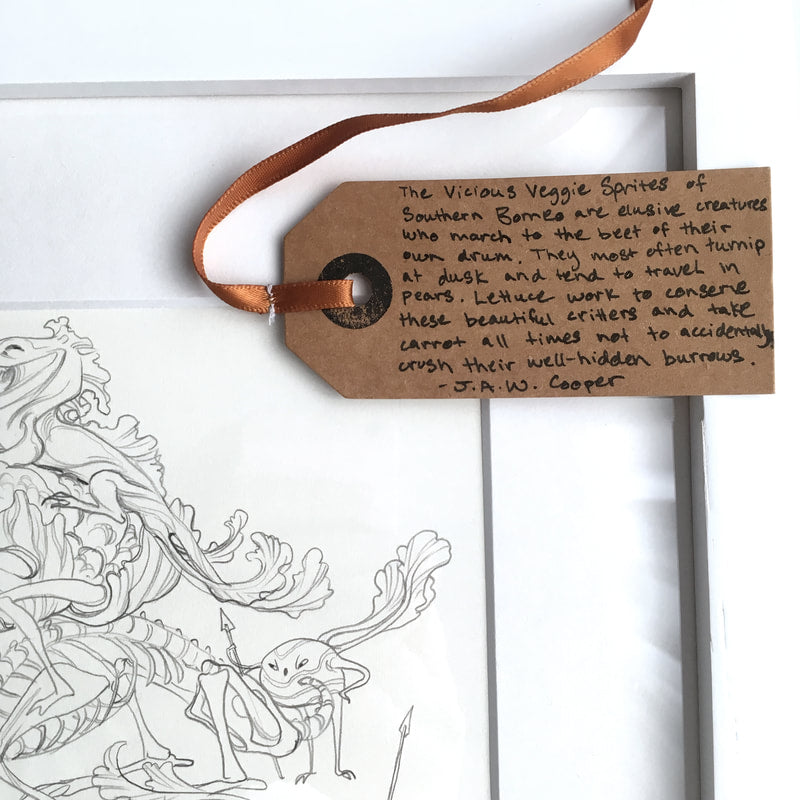 The Vicious Veggie Sprites of
Southern Borneo are elusive creatures
who march to the beet of their
own drum. They most often turnip
at dusk and tend to travel in
pears. Lettuce work to conserve
these beautiful critters and take
carrot all times not to accidentally
crush their well-hidden burrows.
- J.A.W. Cooper